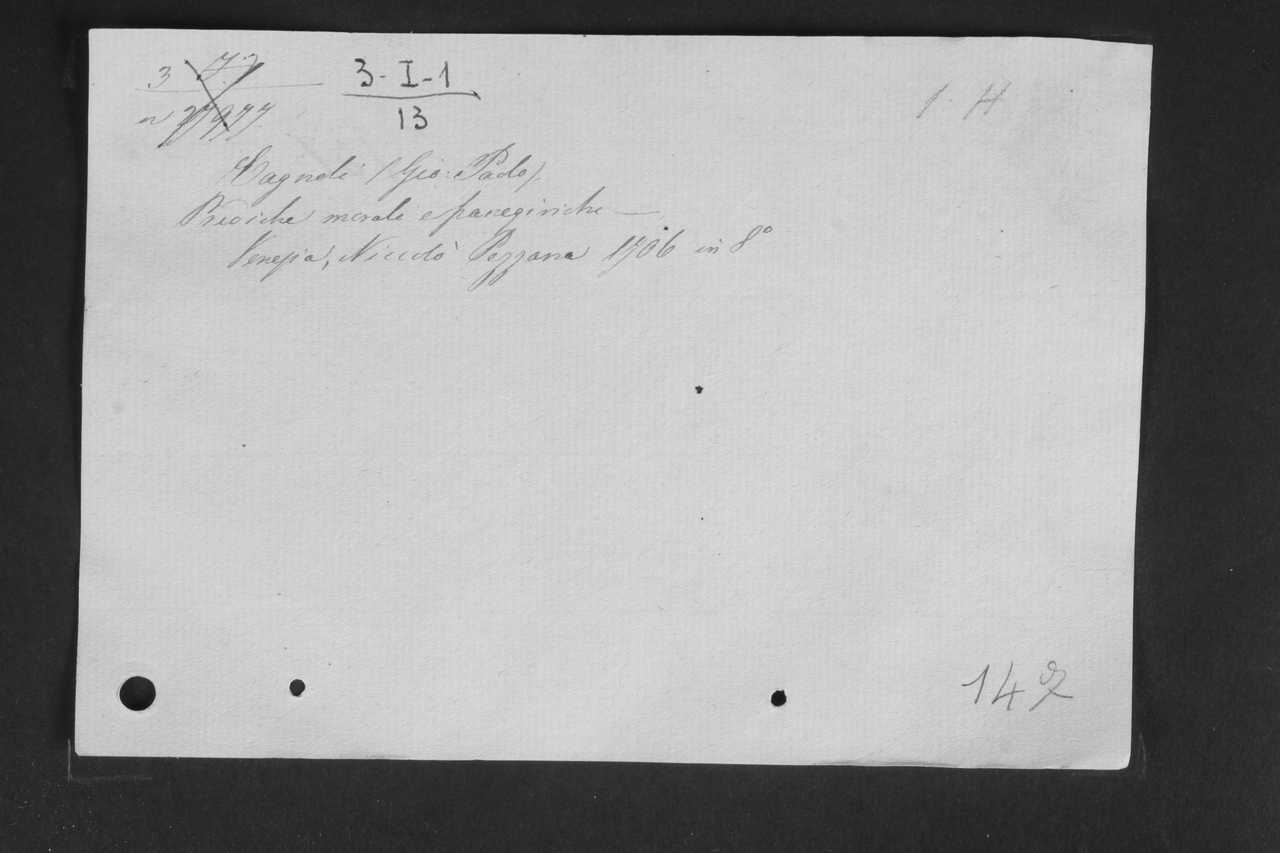 3
3-I-1
13
1. H
Cagnoli (Gio: Paolo)
Prediche morali e panegiriche
Venezia, Niccolò Pezzana 1706 in 8º
147